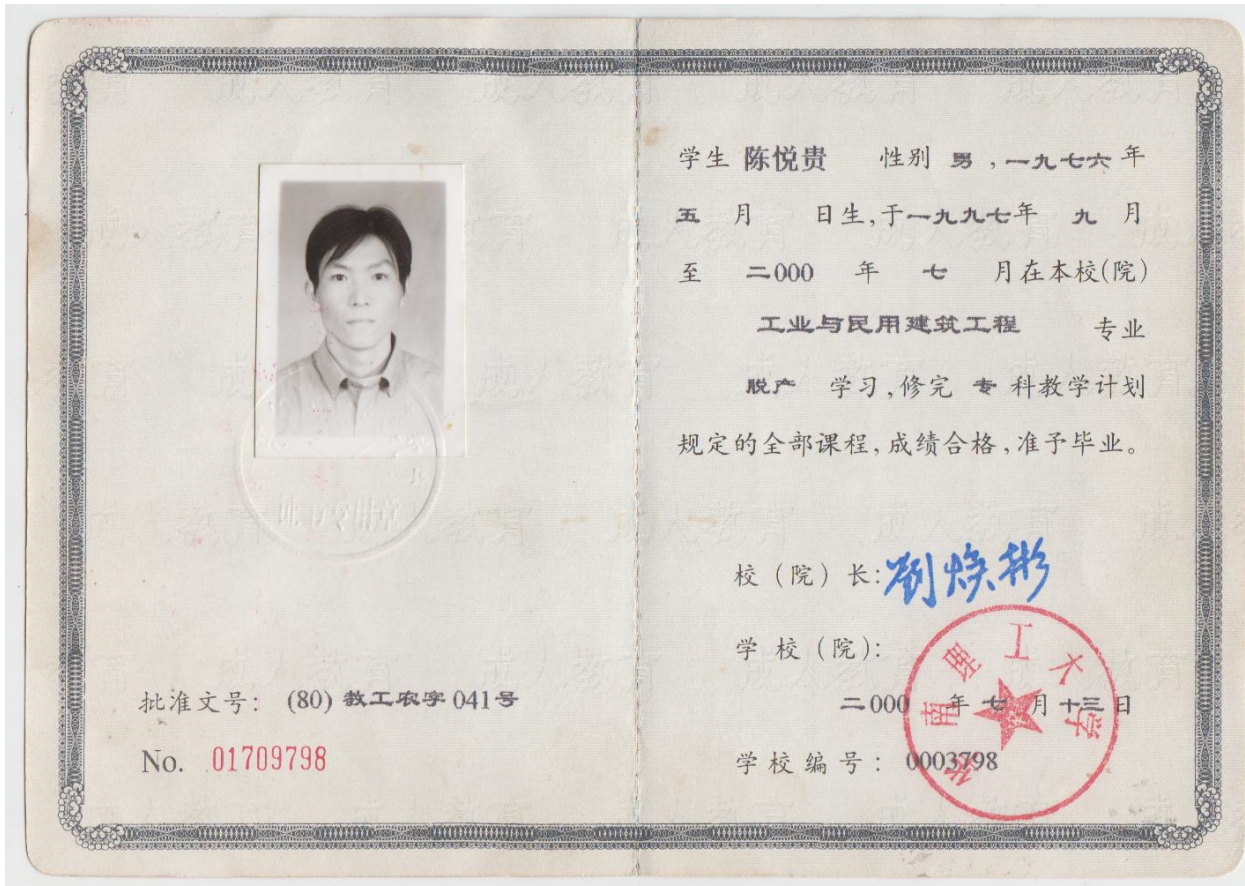 批准文号: (80) 教工农字 041号
No. 01709798
学生 陈悦贵 性别 男 , 一九七六 年
五 月 日生,于一九九七年 九 月
至 二000 年 七 月在本校(院)
工业与民用建筑工程 专业
脱产 学习,修完 专 科教学计划
规定的全部课程,成绩合格,准予毕业。
校 (院) 长: 刘焕彬
学 校 (院):
华南理工大学
二000 年 七 月 十三 日
学 校 编 号: 0003798
成人教育